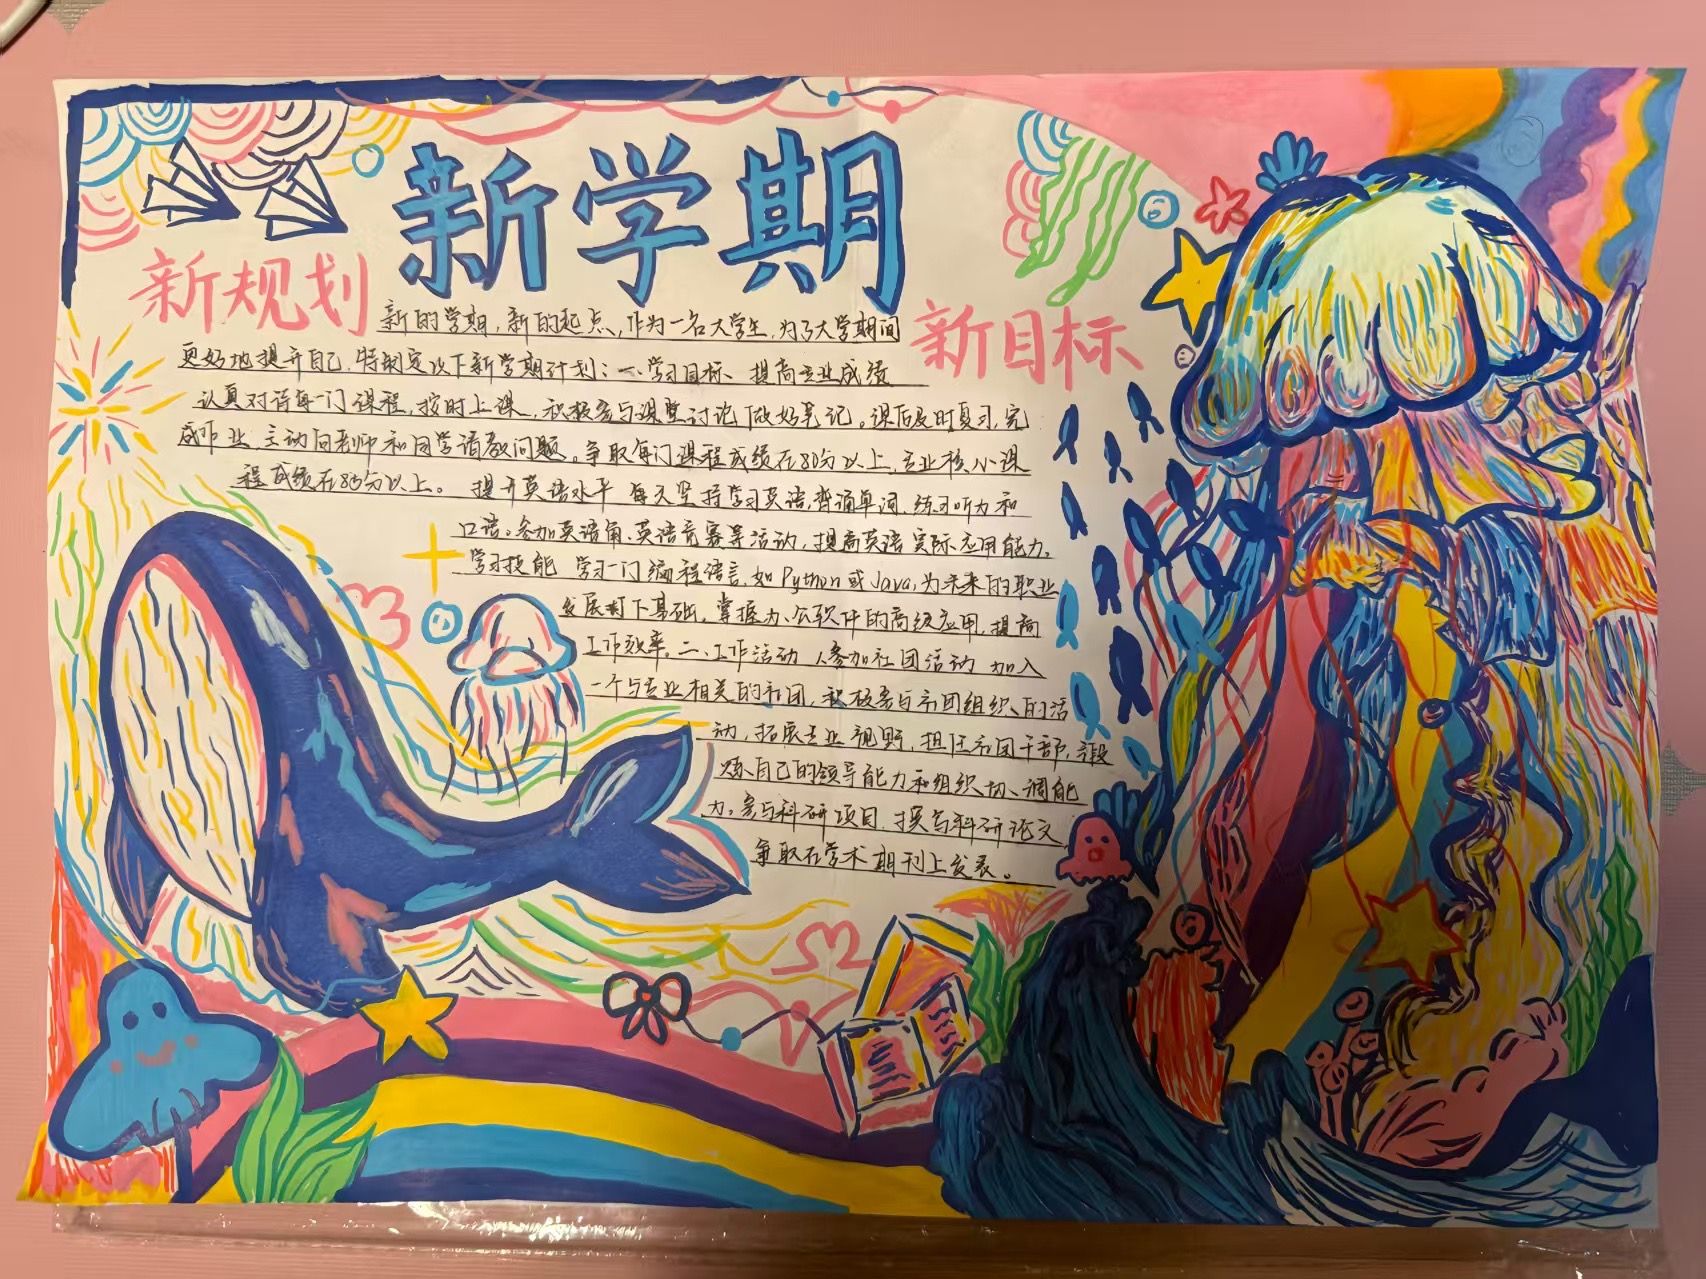 新学期
新规划
新目标
新的学期，新的起点，作为一名大学生，为了大学期间
更好地提升自己，特制定以下新学期计划：一、学习目标、提高专业成绩
认真对待每一门课程，按时上课，积极参与课堂讨论，做好笔记。课后及时复习，完
成作业，主动向老师和同学请教问题。争取每门课程成绩在80分以上，专业核心课
程成绩在85分以上。 提升英语水平 每天坚持学习英语，背诵单词，练习听力和
口语。参加英语角、英语竞赛等活动，提高英语实际应用能力。
学习技能 学习一门编程语言，如Python或Java，为未来的职业
发展打下基础，掌握办公软件的高级应用，提高
工作效率。二、工作活动 参加社团活动 加入
一个与专业相关的社团，积极参与社团组织的活
动，拓展专业视野，担任社团干部，锻
炼自己的领导能力和组织协调能
力。参与科研项目，撰写科研论文
争取在学术期刊上发表。